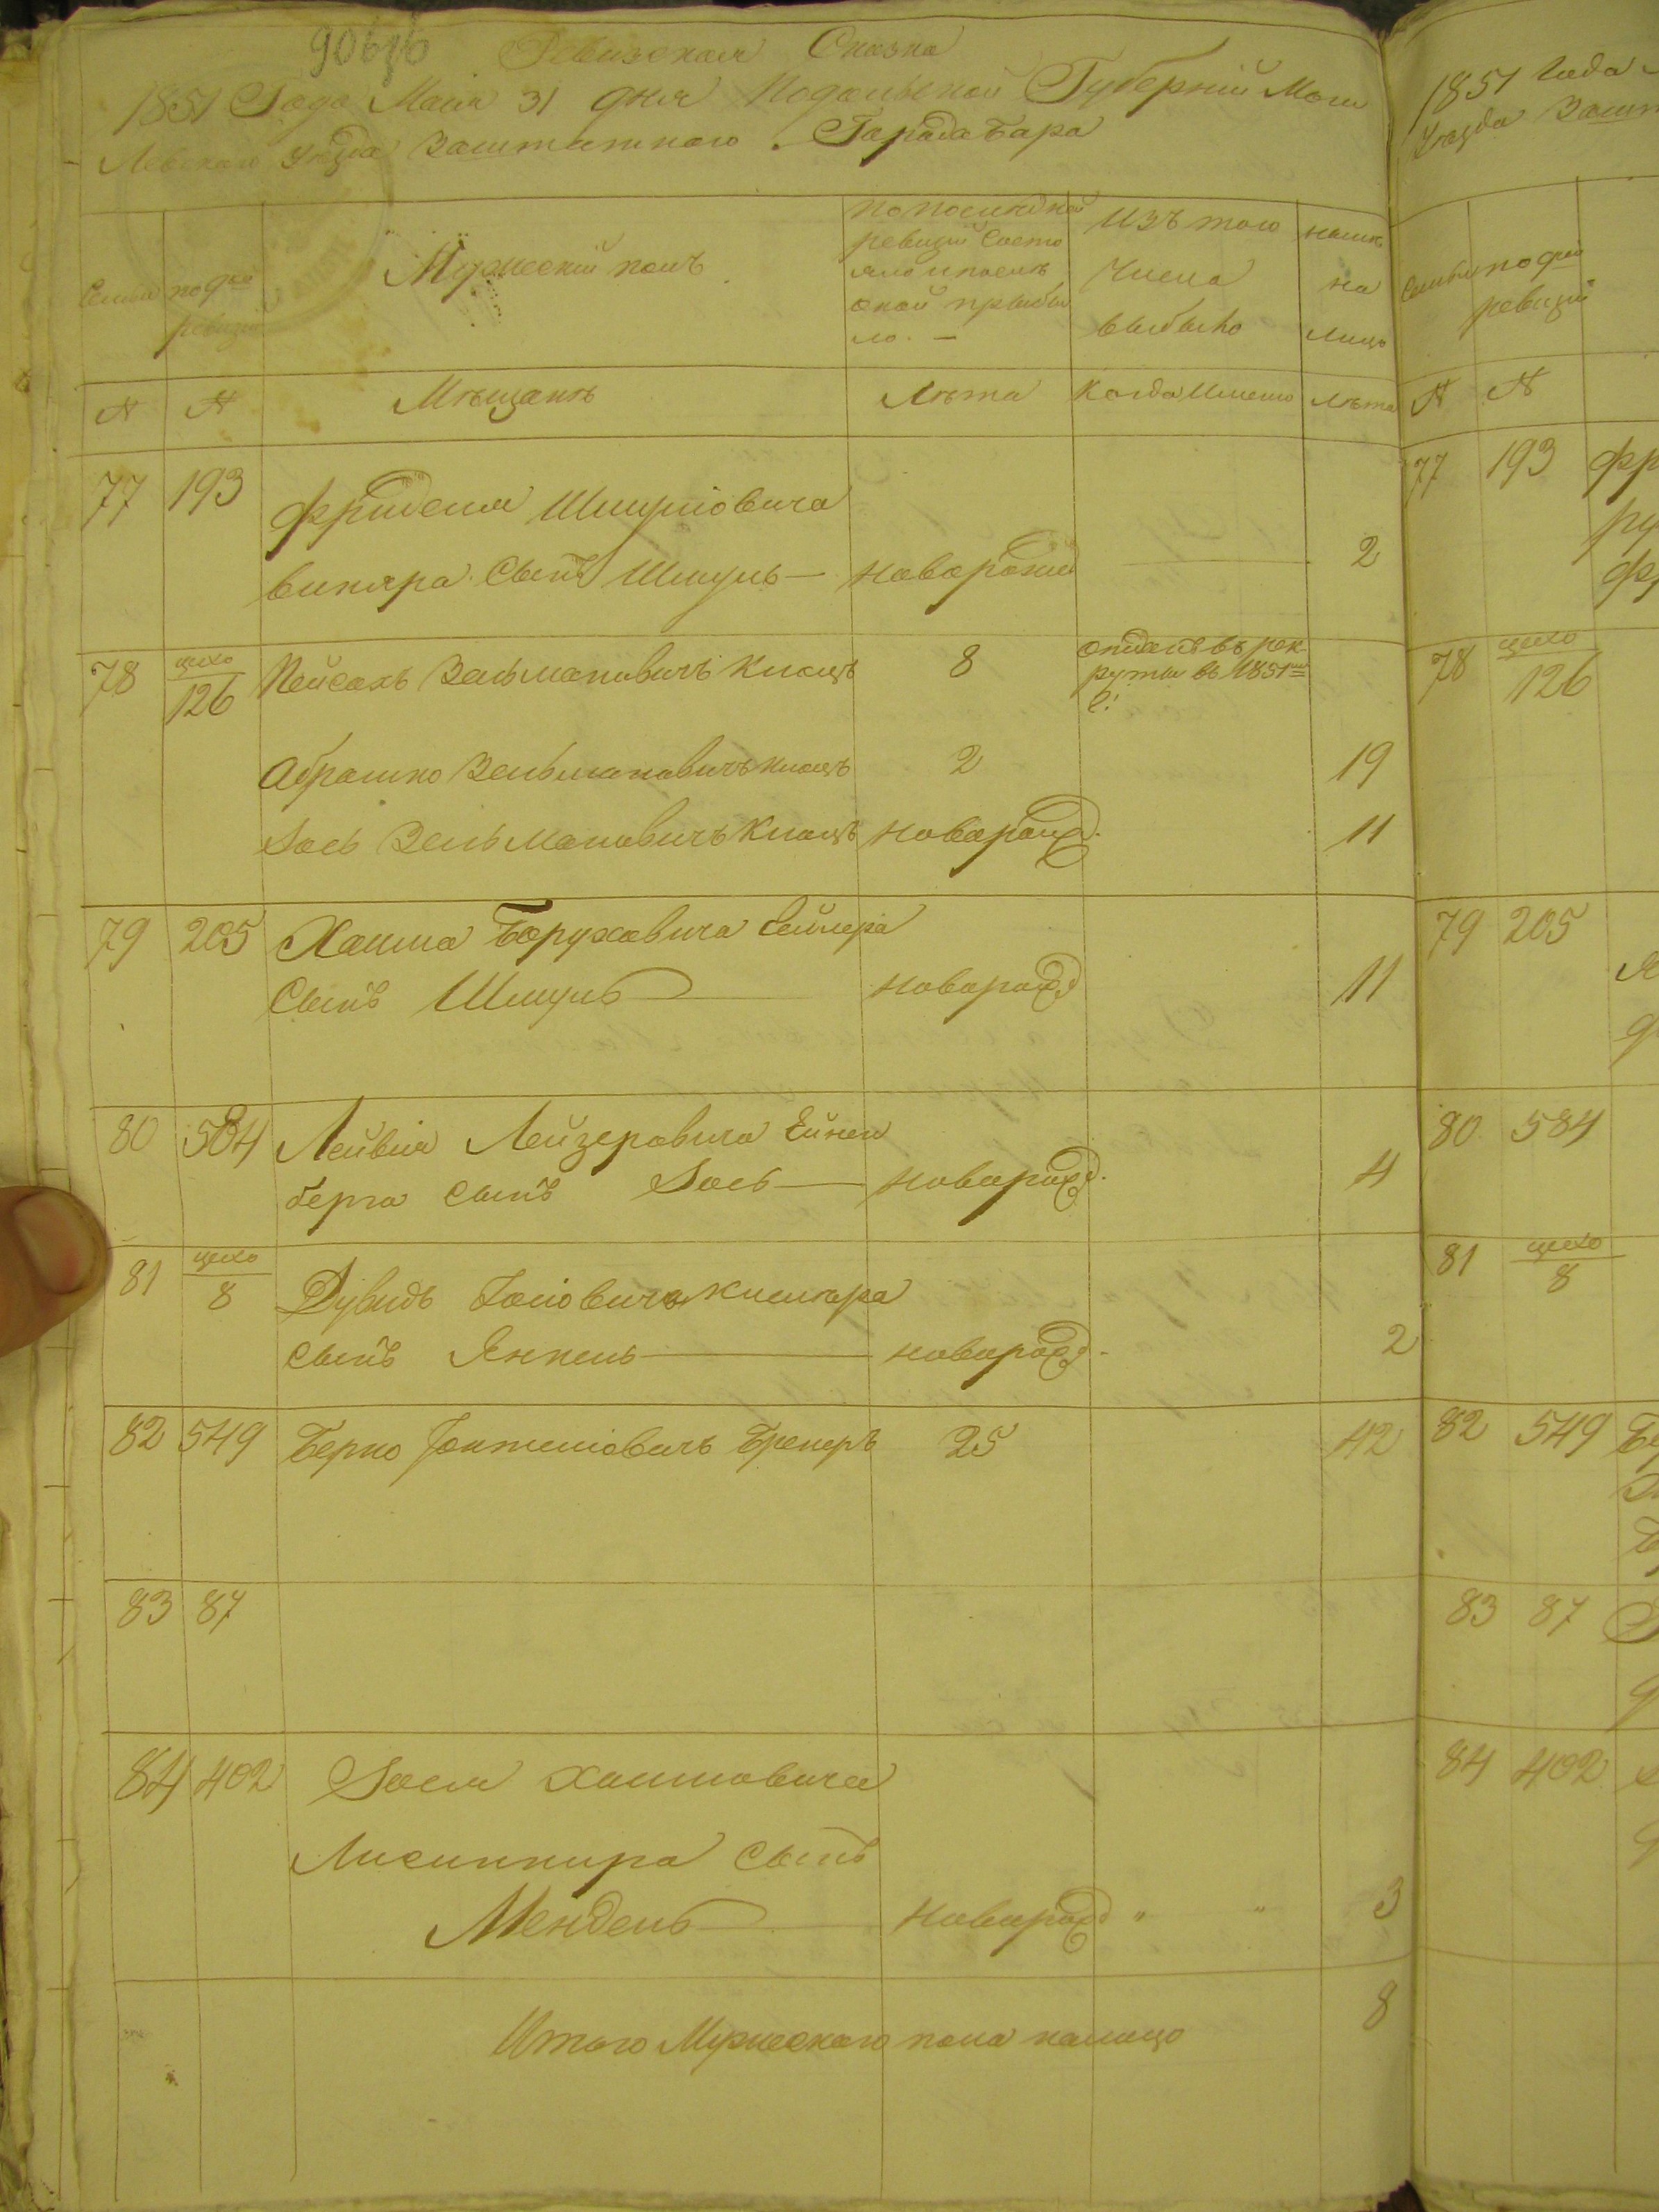 90676 Ревизская Сказка
1851 Года Маия 31 дня Подольской Губернiи Моги
Левского Уезда Заштатного Города Бара
Семьи
по
ревизiи
Мужескiй полъ
по последней
ревизiи Состо
яло и после
оной прибы
ло. —
Изъ того
Числа
выбыло
ныне
на
лицо
№ № Мещане Лета Когда Имено Лета
77 193 Фридля Шмулiовича
Викпра Сынъ Шмуль — новорожд — 2
78 цехо
126 Пейсахъ Зельмановичъ Клоцъ 8 отданъ въ рек-
руты въ 1851мъ
г:
Абрашко Зельмановичъ Клоцъ 2 19
Iось Зельмановичъ Клоцъ новорожд. 11
79 205 Хаима Боруховича Сейлера
Сынъ Шмуль — новорожд 11
80 584 Лейбiя Лейзеровича Ейнен
берга Сынъ Iось — новорожд. 4
81 цехо
8 Дувидъ Iосiовича Кишкера
Сынъ Янкель — новорожд. 2
82 549 Берко Iонтелiовичъ Брекеръ 25 42
83 87
84 402 Iосля Хаимовича
Сынъ
Мендель — новорожд " " 3
Итого Мужескаго пола налицо 8
1851 Года
Уезда Зашт
Семьи
по
ревизiи
№ №
77 193 Фр
ру
Фр
78 цехо
126
79 205
80 584
81 цехо
8
82 549 Бе
83 87
84 402